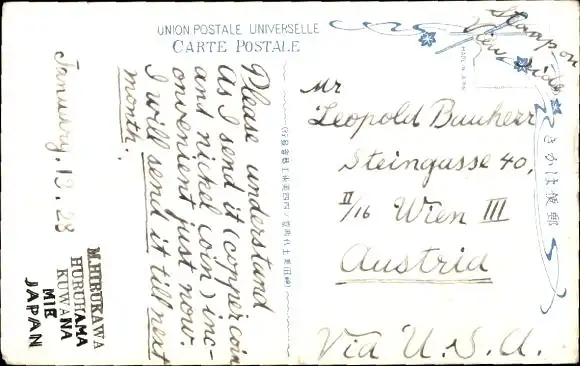 UNION POSTALE UNIVERSELLE
CARTE POSTALE
Stamp on
View side
MADE IN JAPAN
きかは便郵
January. 13. 28
Please understand
as I send it (copper coin
and nickel coin) inc-
onvenient just now.
I will send it till next
month.
M. HIRUKAWA
HURUHAMA
KUWANA
MIE
JAPAN
Mr
Leopold Bauherr
Steingasse 40,
II/16 Wien III
Austria
Via U.S.A.